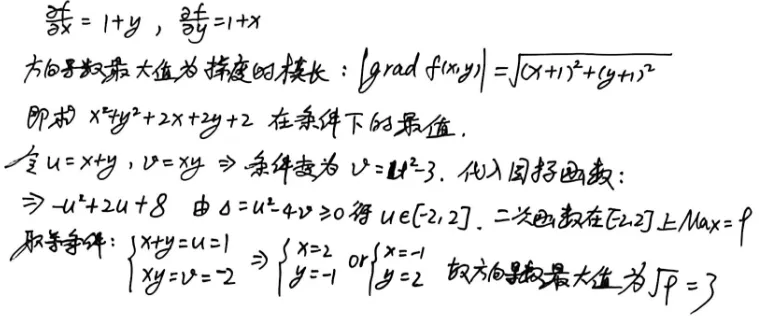 ∂f/∂x = 1+y , ∂f/∂y = 1+x
方向导数最大值为梯度的模长：|grad f(x,y)| = √((x+1)²+(y+1)²)
即求 x²+y²+2x+2y+2 在条件下的最值.
令 u=x+y , v=xy ⇒ 条件变为 v=u²-3. 代入目标函数：
⇒ -u²+2u+8 由 Δ=u²-4v≥0 得 u∈[-2,2]. 二次函数在[-2,2]上Max=9
取等条件：{x+y=u=1 xy=v=-2 ⇒ {x=2 y=-1 or {x=-1 y=2 故方向导数最大值为√9=3